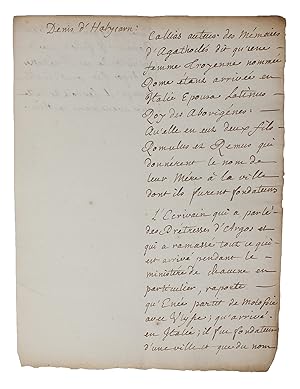 Denis d'Halycarn:
Callias auteur des Mémoires
d'Agathocles dit qu'une
femme Troyenne nommée
Rome etant arrivée en
Italie Epousa Latinus
Roy des Aborigénes: —
Qu'elle en eut deux fils
Romulus et Remus qui
donnérent le nom de
leur Mére à la ville
dont ils furent fondateurs
L'Ecrivain qui a parlé
des Prêtresses d'Argos et
qui a ramassé tout ce qui
est arrivé pendant le
ministére de chacune en
particulier, raporte —
qu'Enée partit de Molossie
avec Ulysse; qu'arrivé
en Italie; il fut fondateur
d'une ville et que du nom